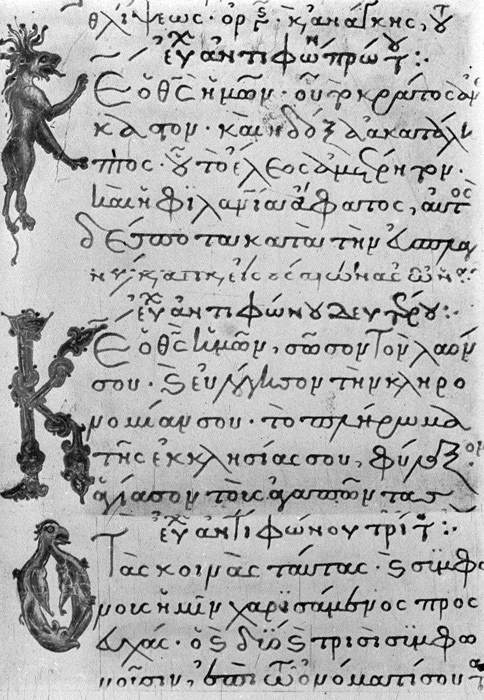 θλίψεως· ὀργ· κ ἀνάγκης,
εὐχ ἀντιφώνου πρώτου:·
Ε ὁ θς ἡμῶν· οὗ τὸ κράτος ἀν
καστον· καὶ ἡ δόξα ἀκατάλη
πτος· οὗ τὸ ἔλεος ἀμέτρητον·
καὶ ἡ φιλανία ἄφατος, αὐτὸς
δέσποτα κατὰ τὴν εὐσπλα
εὐχ ἀντιφώνου δευτέρου:·
Κ Ε ὁ θς ἡμῶν, σῶσον τὸν λαόν
σου· ϗ εὐλόγησον τὴν κληρο
νομίαν σου· τὸ πλήρωμα
τῆς ἐκκλησίας σου, φύλαξον
ἁγίασον τοὺς ἀγαπῶντας
εὐχ ἀντιφώνου τρίτ:·
Ο Τὰς κοινὰς ταύτας· ϗ συμφώ
νους ἡμῖν χαρισάμενος προσ
ευχάς· ὁ ϗ δυσὶ ϗ τρισὶ συμφω
νοῦσιν, ἐπὶ τῷ ὀνόματί σου